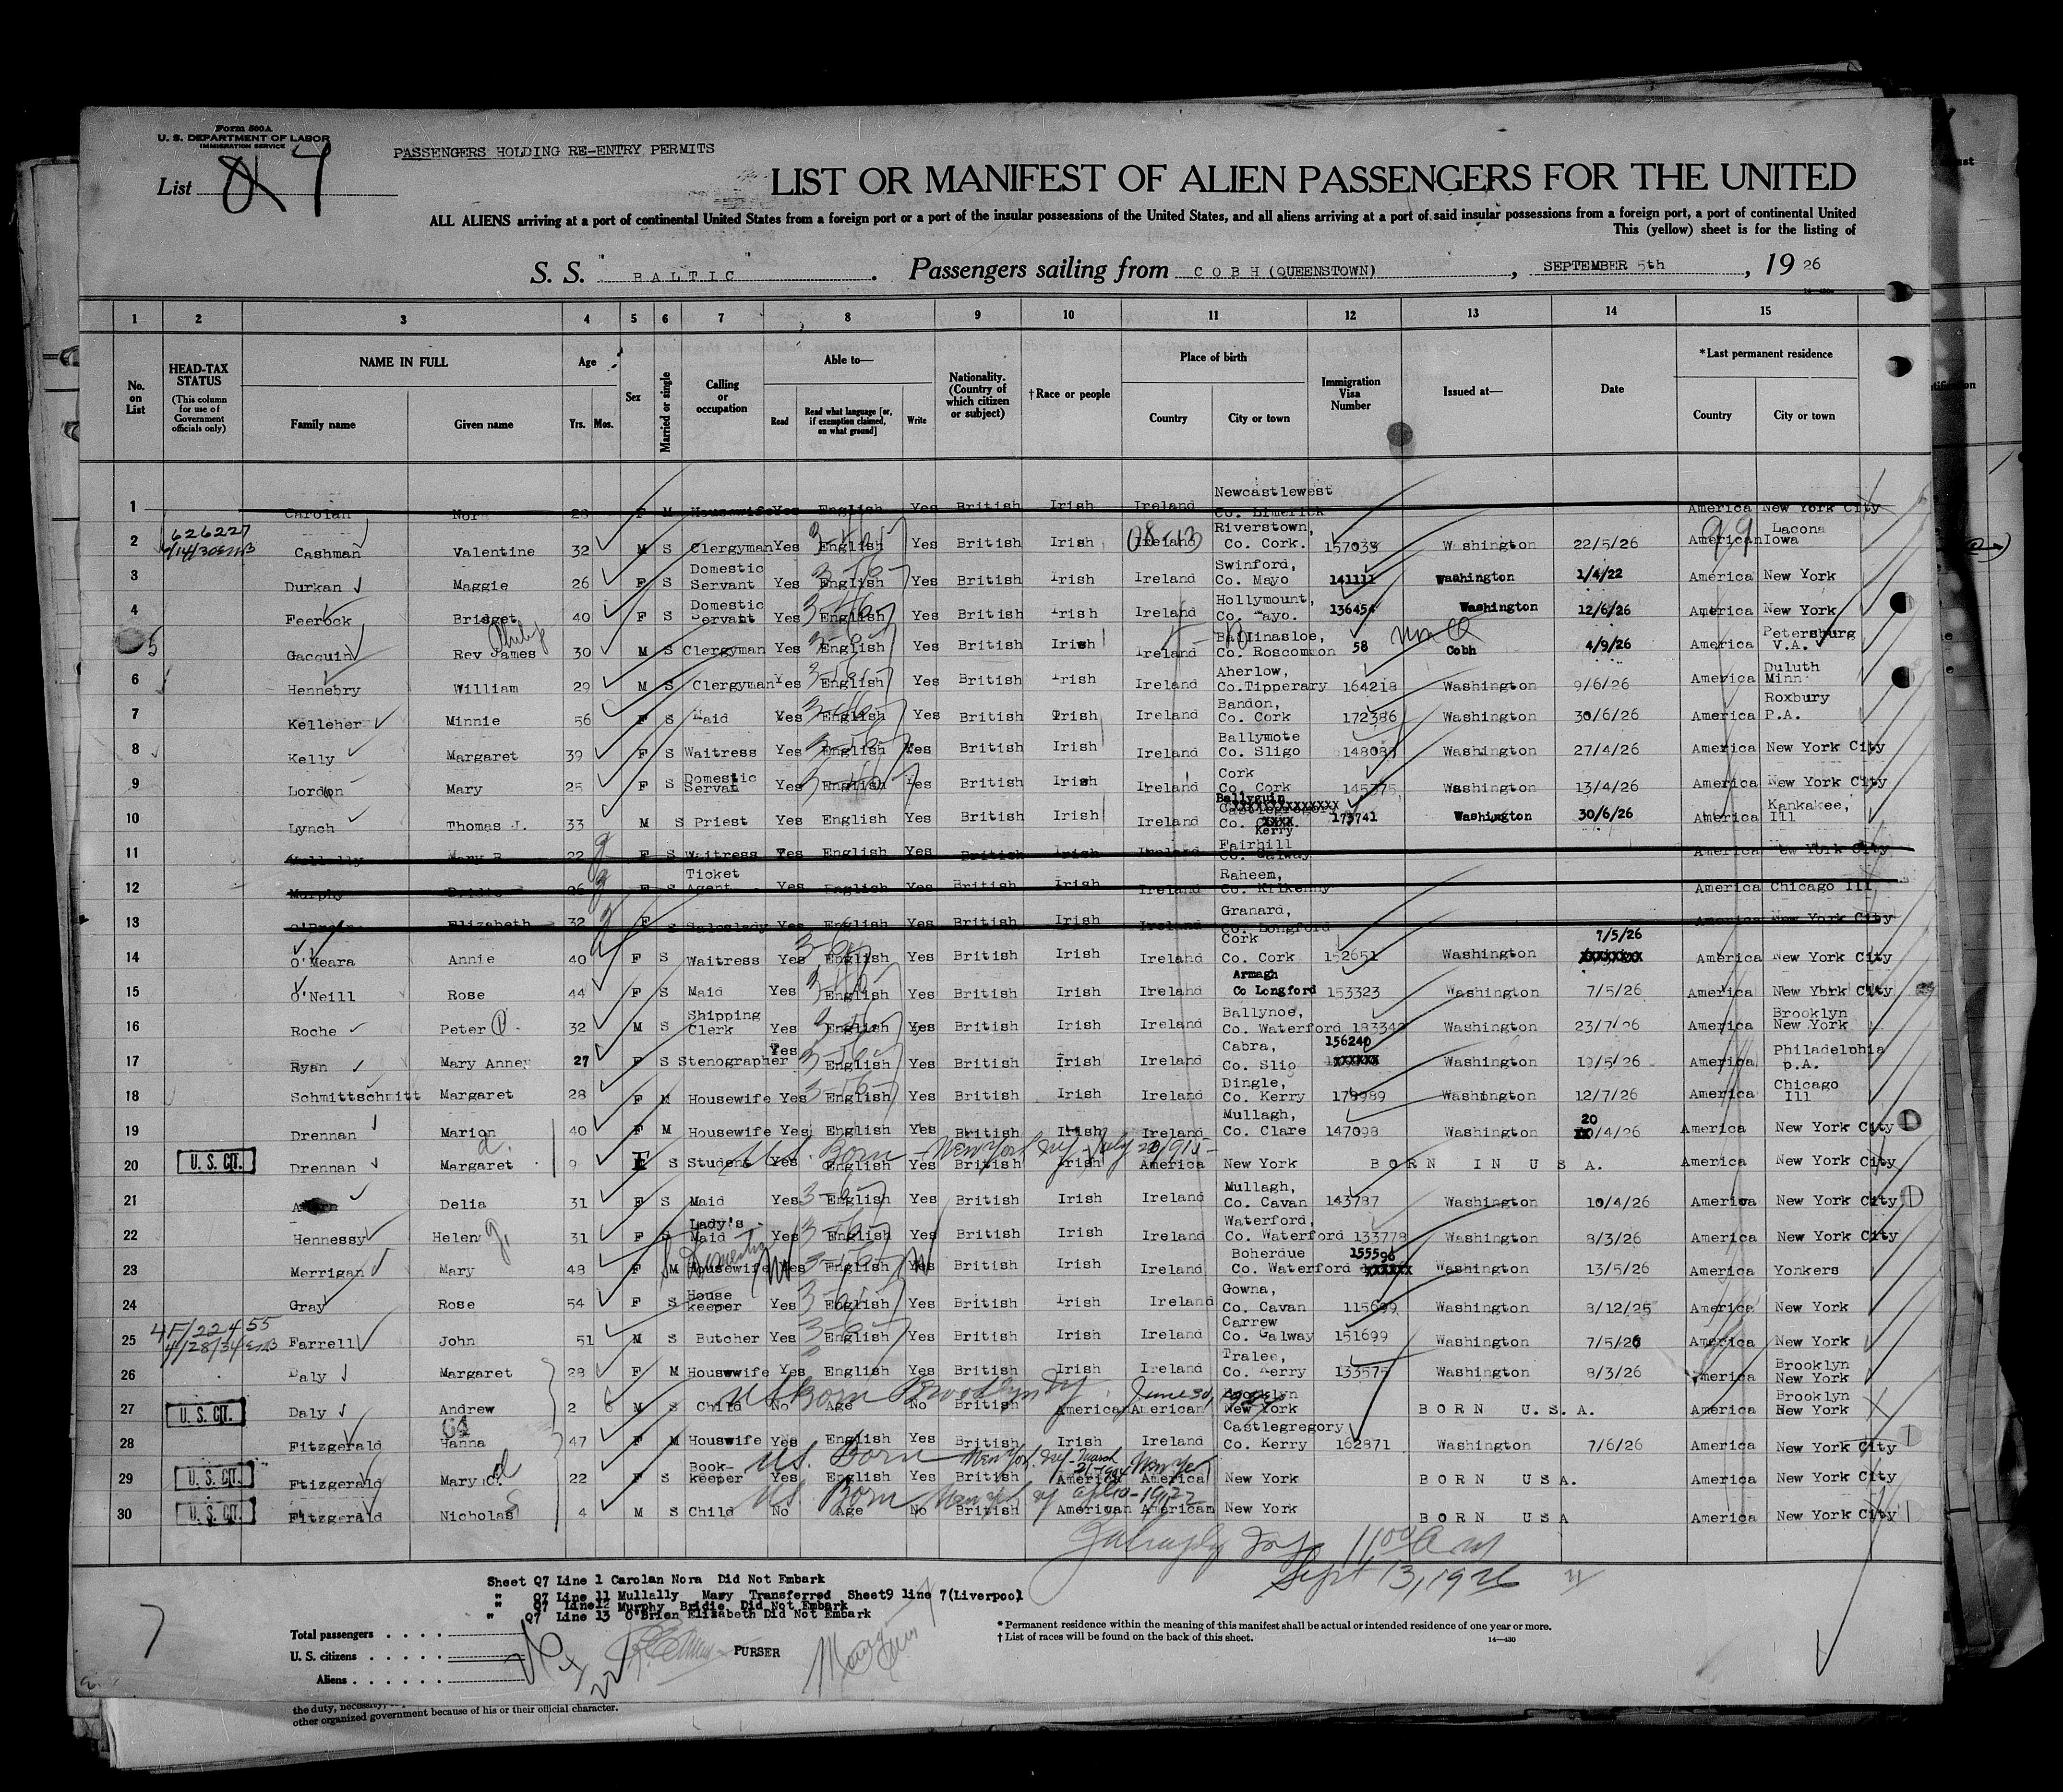 Form 500A
U. S. DEPARTMENT OF LABOR
IMMIGRATION SERVICE
PASSENGERS HOLDING RE-ENTRY PERMITS
List 7
LIST OR MANIFEST OF ALIEN PASSENGERS FOR THE UNITED
ALL ALIENS arriving at a port of continental United States from a foreign port or a port of the insular possessions of the United States, and all aliens arriving at a port of said insular possessions from a foreign port, a port of continental United
This (yellow) sheet is for the listing of
S. S. " BALTIC " . Passengers sailing from COBH (QUEENSTOWN) , SEPTEMBER 5th , 19 26
1 2 3 4 5 6 7 8 9 10 11 12 13 14 15
No. on List HEAD-TAX STATUS (This column for use of Government officials only) NAME IN FULL Family name Given name Age Yrs. Mos. Sex Married or single Calling or occupation Able to— Read Read what language [or, if exemption claimed, on what ground] Write Nationality. (Country of which citizen or subject) †Race or people Place of birth Country City or town Immigration Visa Number Issued at— Date *Last permanent residence Country City or town
1 Carolan Nora 28 F M Housewife Yes English Yes British Irish Ireland Newcastlewest Co. Limerick America New York City
2 626227 Cashman Valentine 32 M S Clergyman Yes English Yes British Irish Ireland Riverstown, Co. Cork. 157035 Washington 22/5/26 American Lacona Iowa
3 Durkan Maggie 26 F S Domestic Servant Yes English Yes British Irish Ireland Swinford, Co. Mayo 141111 Washington 1/4/22 America New York
4 Feerock Bridget 40 F S Domestic Servant Yes English Yes British Irish Ireland Hollymount, Co. Mayo. 136454 Washington 12/6/26 America New York
5 Gacquin Rev James Philip 30 M S Clergyman Yes English Yes British Irish Ireland Ballinasloe, Co. Roscommon 58 Cobh 4/9/26 America Petersburg V.A.
6 Hennebry William 29 M S Clergyman Yes English Yes British Irish Ireland Aherlow, Co.Tipperary 164218 Washington 9/6/26 America Duluth Minn
7 Kelleher Minnie 56 F S Maid Yes English Yes British Irish Ireland Bandon, Co. Cork 172386 Washington 30/6/26 America Roxbury P.A.
8 Kelly Margaret 39 F S Waitress Yes English Yes British Irish Ireland Ballymote Co. Sligo 14808 Washington 27/4/26 America New York City
9 Lordon Mary 25 F S Domestic Servan Yes English Yes British Irish Ireland Cork Co. Cork 145375 Washington 13/4/26 America New York City
10 Lynch Thomas J. 33 M S Priest Yes English Yes British Irish Ireland Ballyguin Co. Kerry 173741 Washington 30/6/26 America Kankakee, Ill
11 Mullally Mary B 22 F S Waitress Yes English Yes British Irish Ireland Fairhill Co. Galway America New York City
12 Murphy Bridie 26 F S Ticket Agent Yes English Yes British Irish Ireland Raheem, Co. Kilkenny America Chicago Ill
13 O'Brein Elizabeth 32 F S Saleslady Yes English Yes British Irish Ireland Granard, Co. Longford America New York City
14 O'Meara Annie 40 F S Waitress Yes English Yes British Irish Ireland Cork Co. Cork 152651 Washington 7/5/26 America New York City
15 O'Neill Rose 44 F S Maid Yes English Yes British Irish Ireland Armagh Co Longford 153323 Washington 7/5/26 America New York City
16 Roche Peter P. 32 M S Shipping Clerk Yes English Yes British Irish Ireland Ballynoe, Co. Waterford 18334 Washington 23/7/26 America Brooklyn New York
17 Ryan Mary Anne 27 F S Stenographer Yes English Yes British Irish Ireland Cabra, Co. Slio 156240 Washington 19/5/26 America Philadelphia p.A.
18 Schmittschmitt Margaret 28 F M Housewife Yes English Yes British Irish Ireland Dingle, Co. Kerry 179989 Washington 12/7/26 America Chicago Ill
19 Drennan Marion 40 F M Housewife Yes English Yes British Irish Ireland Mullagh, Co. Clare 147098 Washington 20/4/26 America New York City
20 U. S. CIT. Drennan Margaret 9 F S Student Yes English Yes British Irish America New York BORN IN USA. America New York City
U.S. Born - New York Ny - July
21 Delia 31 F S Maid Yes English Yes British Irish Ireland Mullagh, Co. Cavan 143787 Washington 10/4/26 America New York City
22 Hennessy Helen 31 F S Lady's Maid Yes English Yes British Irish Ireland Waterford, Co. Waterford 133778 Washington 8/3/26 America New York City
23 Merrigan Mary 48 F M Housewife Domestic Yes English Yes British Irish Ireland Boherdue Co. Waterford 155596 Washington 13/5/26 America Yonkers
24 Gray Rose 54 F S House keeper Yes English Yes British Irish Ireland Gowna, Co. Cavan 115699 Washington 8/12/25 America New York
25 4F/22455 4/28/34 Farrell John 51 M S Butcher Yes English Yes British Irish Ireland Carrew Co. Galway 151699 Washington 7/5/26 America New York
26 Daly Margaret 28 F M Housewife Yes English Yes British Irish Ireland Tralee, Co. Kerry 133575 Washington 8/3/26 America Brooklyn New York
US Born Brooklyn Ny June 30, 1924
27 U. S. CIT. Daly Andrew 2 6 M S Child No Age No British American American Brooklyn New York BORN U.S.A. America Brooklyn New York
28 Fitzgerald Hanna 47 F M Houswife Yes English Yes British Irish Ireland Castlegregory Co. Kerry 162871 Washington 7/6/26 America New York City
29 U. S. CIT. Ftizgerald Mary C. 22 F S Book-keeper Yes English Yes British America America New York BORN USA. America New York City
U.S. Born New York, Ny - March
30 U. S. CIT. Fitzgerald Nicholas 4 M S Child No Age No British American American New York BORN USA America New York City
U.S. Born New York Ny 1922
11 00 A M
Sept 13, 1926
Sheet Q7 Line 1 Carolan Nora Did Not Embark
" Q7 Line 11 Mullally Mary Transferred Sheet9 line 7(Liverpool)
" Q7 Line12 Murphy Bridie Did Not Embark
" Q7 Line 13 O'Brien Elizabeth Did Not Embark
7
Total passengers . . . .
U. S. citizens . . . . .
Aliens . . . . . .
PURSER
* Permanent residence within the meaning of this manifest shall be actual or intended residence of one year or more.
† List of races will be found on the back of this sheet.
14—430
the duty, necessity,
other organized government because of his or their official character.